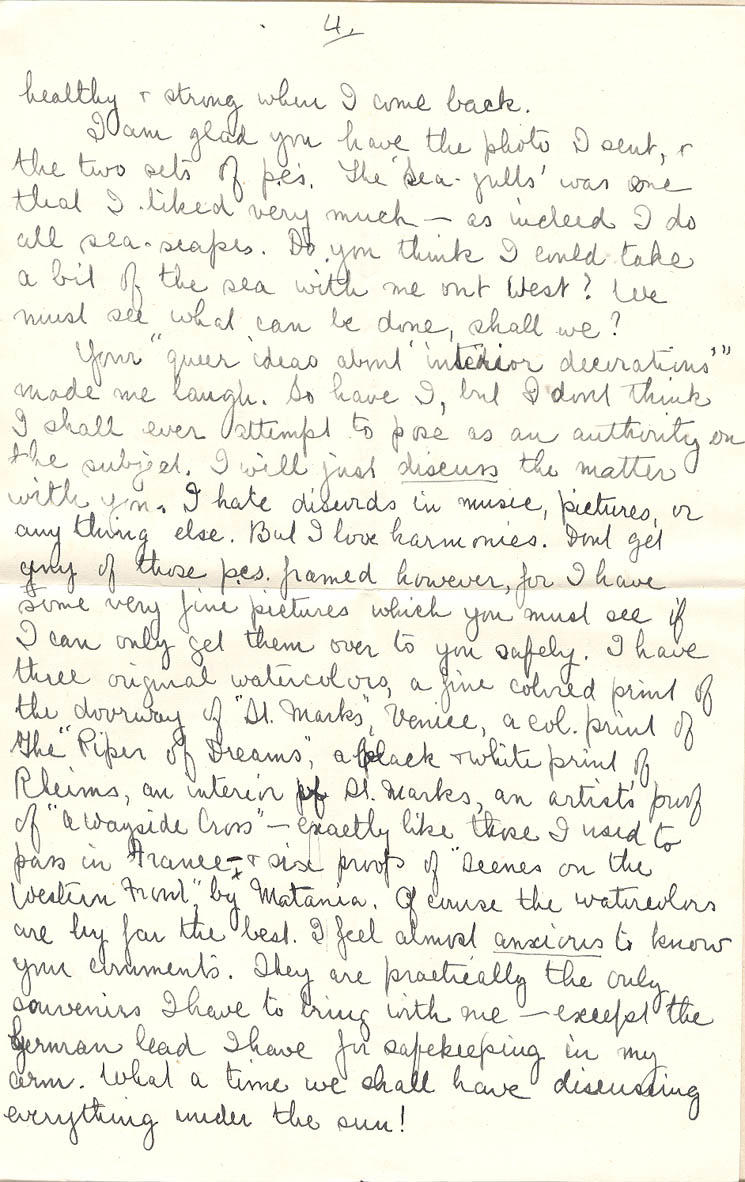 4.
healthy + strong when I come back.
I am glad you have the photo I sent, +
the two sets of p.c's. The 'Sea-gulls' was one
that I liked very much — as indeed I do
all sea-scapes. Do you think I could take
a bit of the sea with me out West? We
must see what can be done, shall we?
Your "queer ideas about "interior decorations""
made me laugh. So have I, but I dont think
I shall ever attempt to pose as an authority on
the subject. I will just discuss the matter
with you. I hate discords in music, pictures, or
any thing else. But I love harmonies. Dont get
any of those p.cs. framed however, for I have
some very fine pictures which you must see if
I can only get them over to you safely. I have
three original watercolors, a fine colored print of
the doorway of "St. Marks", Venice, a col. print of
the "Piper of Dreams", a black + white print of
Rheims, an interior of St. Marks, an artists' proof
of "a Wayside Cross" — exactly like those I used to
pass in France — + six proofs of "Scenes on the
Western Front", by Matania. Of course the watercolors
are by far the best. I feel almost anxious to know
your comments. They are practically the only
souvenirs I have to bring with me — except the
German lead I have for safekeeping in my
arm. What a time we shall have discussing
everything under the sun!